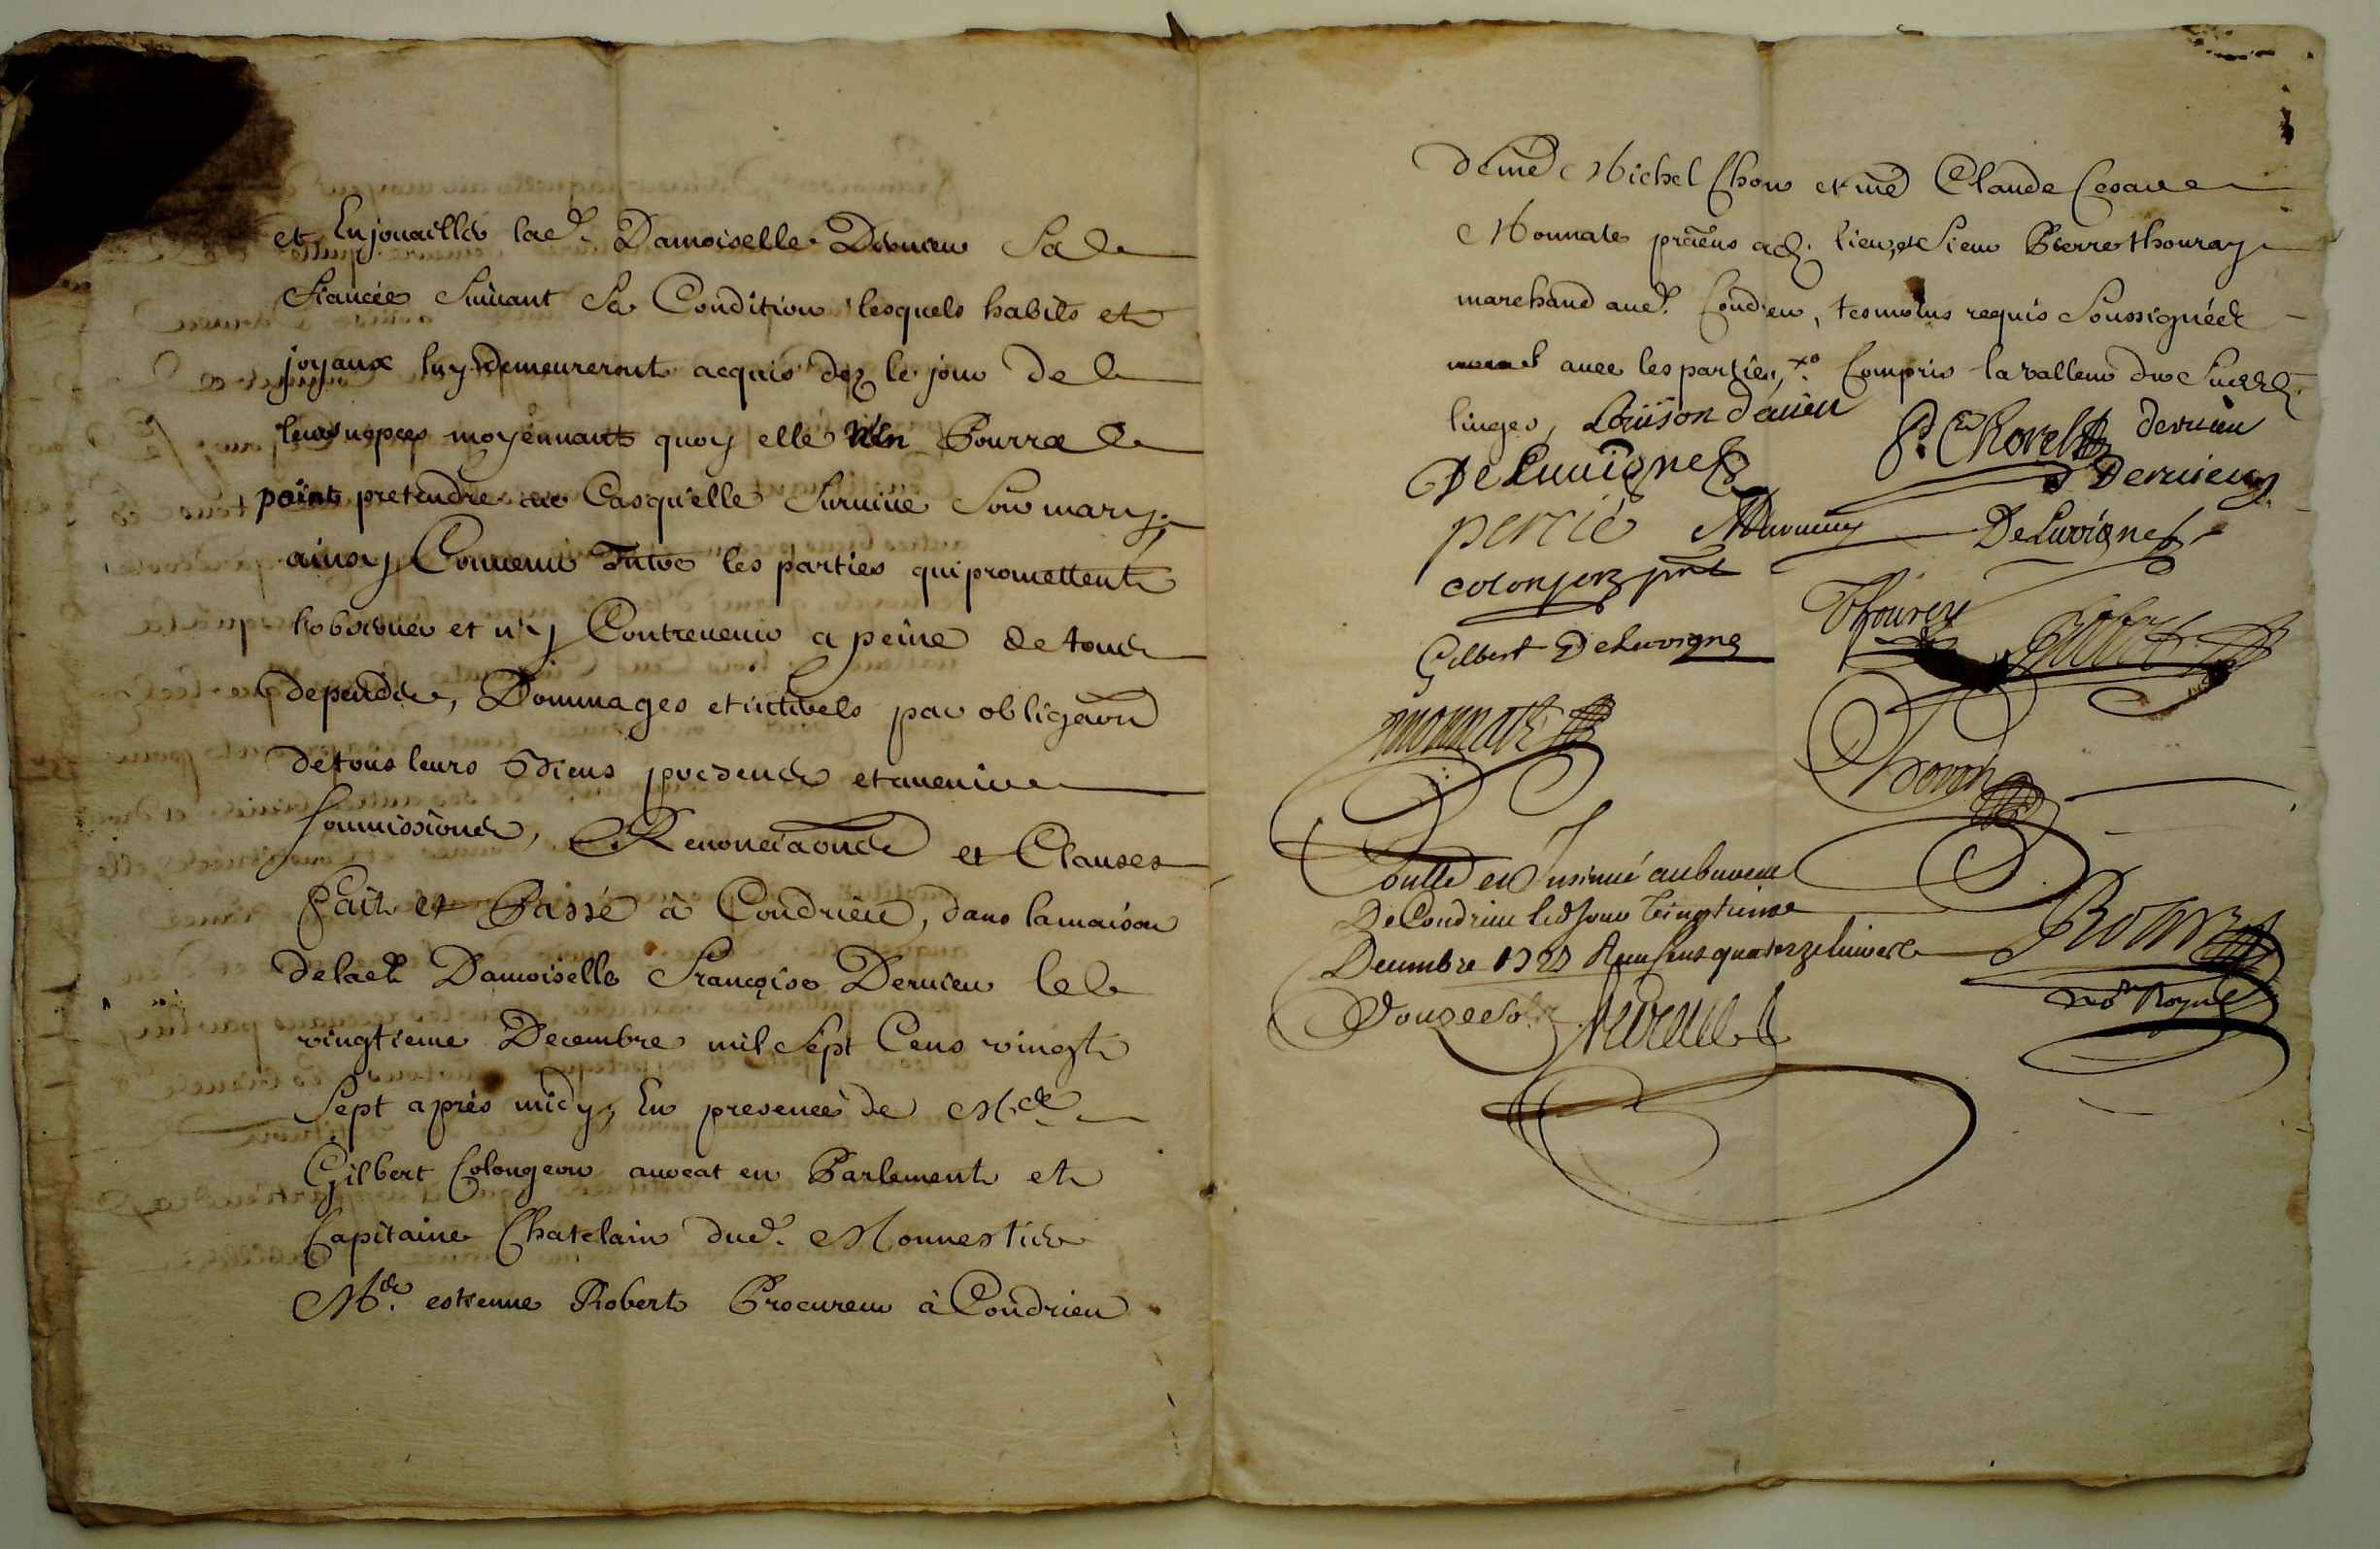 et Enjouailler lad. Damoiselle Dervieu Sa
fiancée Suivant Sa Condition lesquels habits et
joyaux luy demeureront acquis dez le jour de
leurs nopces moyennant quoy elle n'en Pourra
point pretendre au Cas qu'elle Survive Son mary.
ainsy Convenu Entre les parties qui promettent
l'observer et n'y Contrevenir a peine de tous
depends, Dommages et interests par obligaon
de tous leurs Biens presends et avenir
Soumissions, Renonciaonds et Clauses
Fait et Passé à Condrieu, dans la maison
delad. Damoiselle Françoise Dervieu le
vingtieme Decembre mil Sept Cens vingt
Sept après midy, En presence de Me.
Gilbert Colongeon avocat en Parlement et
Capitaine Chatelain dud. Monnestier
Me. estienne Robert Procureur à Condrieu
de me Michel Chom et me Claude Cesar
Monnate pñts aud. lieu, et Sieur Pierre thouray
marchand aud. Condrieu, tesmoins requis Soussignés
avec les parties, Compris la valleur du
linges, Louison dervieu
P. Chovel dervieu
DeLuvigne
Dervieu
percié
DeLuvigne
colonjon pnt
Thouray
Gilbert DeLuvigne
Robert
monnate
Chom
Conllé et Insinué au bureau
De Condrieu led Jour Vingtieme
Decembre 1727 Receu Cens quatorze livres
Douze Sols
not Royal